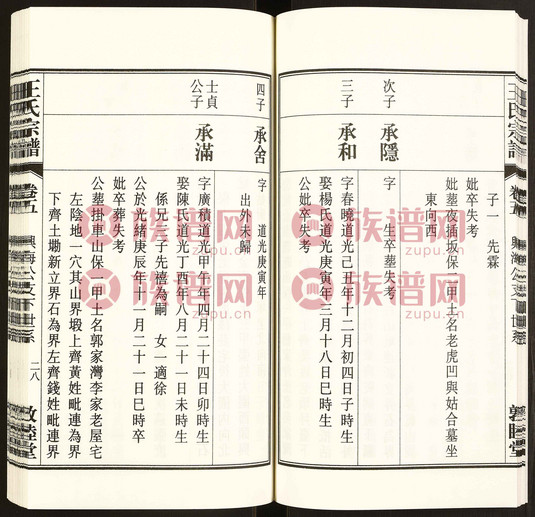 子一 先霖
妣卒失考
妣塟夜插坂保一甲土名老虎凹與姑合墓坐
東向西
次子 承隱
字 生卒塟失考
三子 承和
字春曉道光己丑年十二月初四日子時生
娶楊氏道光庚寅年三月十八日巳時生
公妣卒失考
王氏宗譜
卷五
興海公支下世系
敦睦堂
四子 承舍
字 道光庚寅年
出外未歸
士貞公子 承滿
字廣積道光甲午年四月二十四日卯時生
娶陳氏道光丁酉年八月二十一日未時生
係兄三子先禧為嗣 女一適徐
公於光緒庚辰年十一月二十一日巳時卒
妣卒葬失考
公塟掛車山保一甲土名郭家灣李家老屋宅
左陰地一穴其山界塅上齊黃姓毗連為界
下齊土塝新立界石為界左齊錢姓毗連界
王氏宗譜
卷五
興海公支下世系
二八
敦睦堂
族谱网
zupu.cn
族谱网
zupu.cn
族谱网
zupu.cn
族谱网
zupu.cn